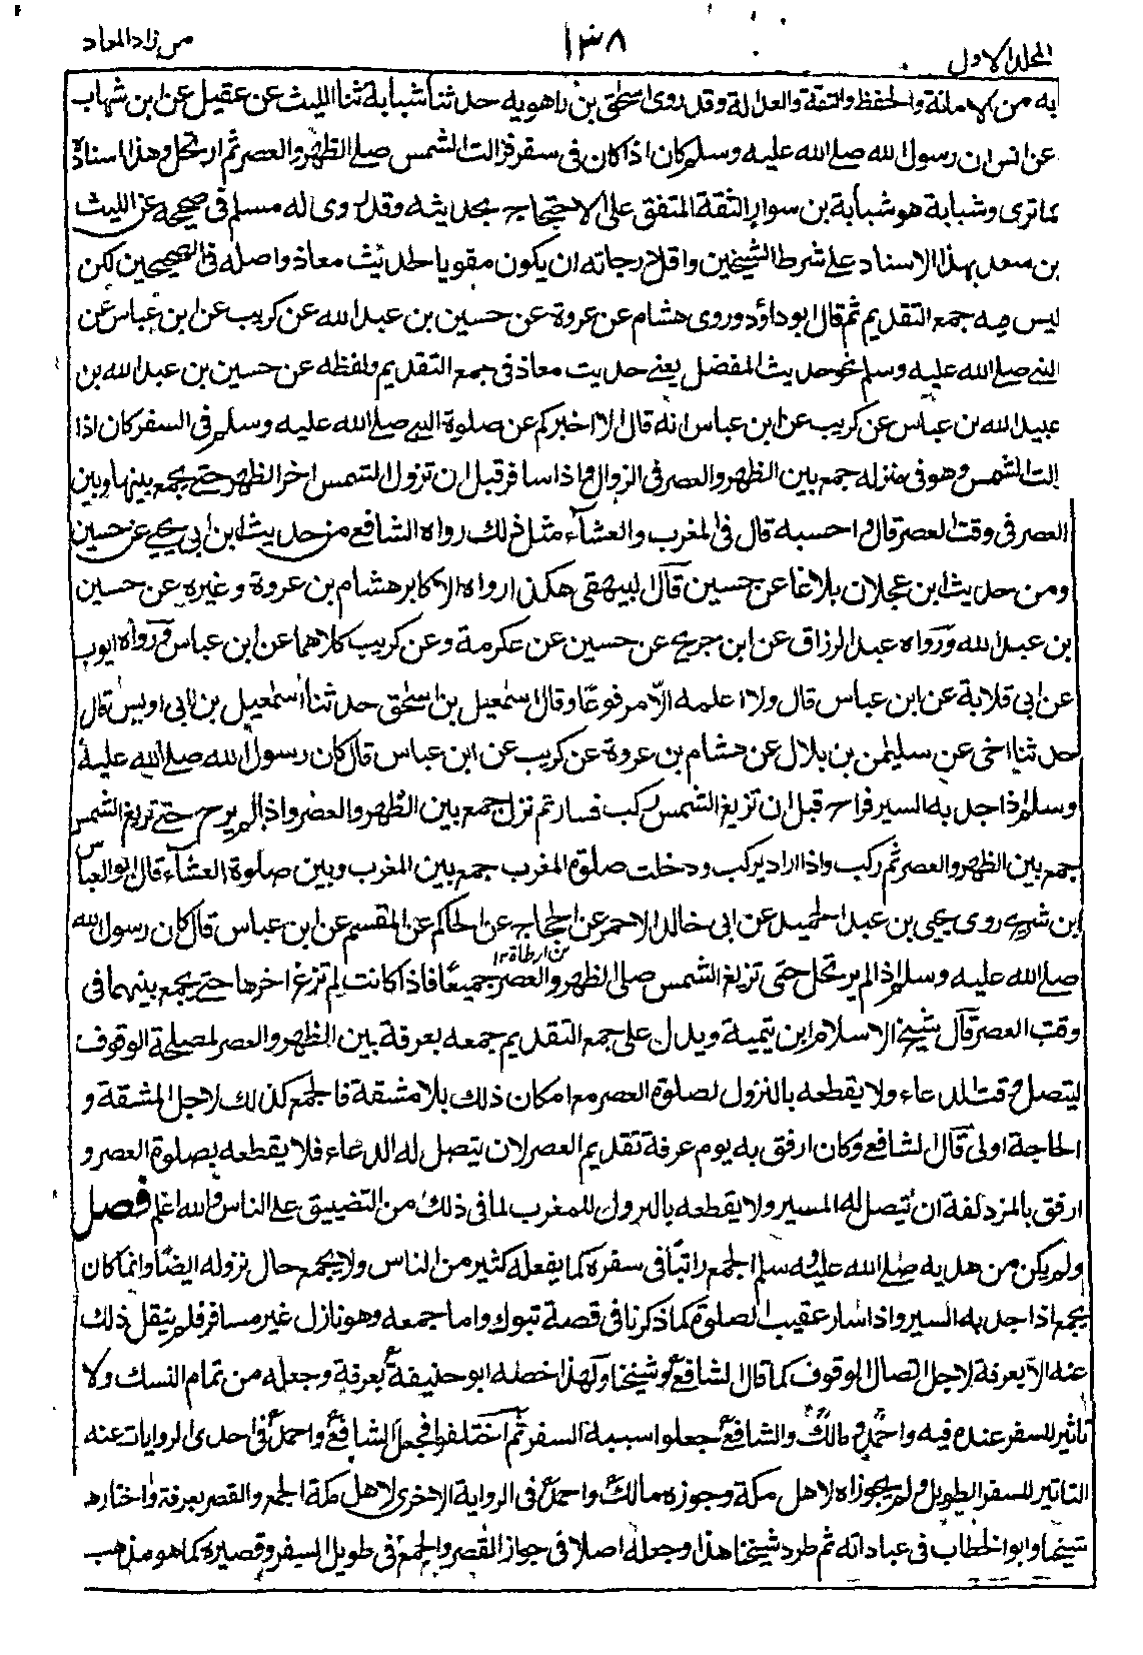 المجلد الاول ١٣٨ من زاد المعاد
به من الامانة والحفظ والثقة والعدالة وقد روى اسحق بن راهويه حدثنا شبابة ثنا الليث عن عقيل عن ابن شهاب
عن انس ان رسول الله صلى الله عليه وسلم كان اذا كان فى سفر فزالت الشمس صلى الظهر والعصر ثم ارتحل وهذا اسناد
كما ترى وشبابة هو شبابة بن سوار الثقة المتفق على الاحتجاج بحديثه وقد روى له مسلم فى صحيحه عن الليث
بن سعد بهذا الاسناد على شرط الشيخين واقل درجاته ان يكون مقويا لحديث معاذ واصله فى الصحيحين لكن
ليس فيه جمع التقديم ثم قال ابو داؤد وروى هشام عن عروة عن حسين بن عبد الله عن كريب عن ابن عباس عن
النبي صلى الله عليه وسلم نحو حديث المفضل يعنى حديث معاذ فى جمع التقديم ولفظه عن حسين بن عبد الله بن
عبيد الله بن عباس عن كريب عن ابن عباس انه قال الا اخبركم عن صلوة النبي صلى الله عليه وسلم فى السفر كان اذا
الت الشمس وهو فى منزله جمع بين الظهر والعصر فى الزوال واذا سافر قبل ان تزول الشمس اخر الظهر حتى يجمع بينها وبين
العصر فى وقت العصر قال واحسبه قال فى المغرب والعشآء مثل ذلك رواه الشافعى من حديث ابن ابى يحيى عن حسين
ومن حديث ابن عجلان بلاغا عن حسين قال البيهقى هكذا رواه الاكابر هشام بن عروة وغيره عن حسين
بن عبد الله ورواه عبد الرزاق عن ابن جريج عن حسين عن عكرمة وعن كريب كلاهما عن ابن عباس ورواه ايوب
عن ابى قلابة عن ابن عباس قال ولا اعلمه الا مرفوعًا وقال اسمعيل بن اسحق حدثنا اسمعيل بن ابى اويس قال
حدثنا اخى عن سليمن بن بلال عن هشام بن عروة عن كريب عن ابن عباس قال كان رسول الله صلى الله عليه
وسلم اذا جد به السير فراح قبل ان تزيغ الشمس ركب فسار ثم نزل جمع بين الظهر والعصر واذا لم يرح حتى تزيغ الشمس
جمع بين الظهر والعصر ثم ركب واذا اراد يركب ودخلت صلوة المغرب جمع بين المغرب وبين صلوة العشآء قال ابو العباس
ابن شريح روى يحيى بن عبد الحميد عن ابى خالد الاحمر عن الحجاج عن الحاكم عن المقسم عن ابن عباس قال كان رسول الله
بن ارطاة ١٢
صلى الله عليه وسلم اذا لم يرتحل حتى تزيغ الشمس صلى الظهر والعصر جميعًا فاذا كانت لم تزغ اخرها حتى يجمع بينهما فى
وقت العصر قال شيخ الاسلام ابن تيمية ويدل على جمع التقديم جمعه بعرفة بين الظهر والعصر لمصلحة الوقوف
ليتصل وقت الدعاء ولا يقطعه بالنزول لصلوة العصر مع امكان ذلك بلا مشقة فالجمع كذلك لاجل المشقة و
الحاجة اولى قال الشافعى وكان ارفق به يوم عرفة تقديم العصر لان يتصل له الدعاء فلا يقطعه بصلوة العصر و
ارفق بالمزدلفة ان يتصل له المسير ولا يقطعه بالنزول للمغرب لما فى ذلك من التضييق على الناس والله اعلم فصل
ولم يكن من هديه صلى الله عليه وسلم الجمع راتبًا فى سفره كما يفعله كثير من الناس ولا يجمع حال نزوله ايضًا وانما كان
يجمع اذا جد به السير واذا سار عقيب الصلوة كما ذكرنا فى قصة تبوك واما جمعه وهو نازل غير مسافر فلم ينقل ذلك
عنه الا بعرفة لاجل اتصال الوقوف كما قال الشافعى وشيخنا ولهذا خصه ابو حنيفة بعرفة وجعله من تمام النسك ولا
تأثير للسفر عنده فيه واحمد ومالك والشافعى جعلوا سببه السفر ثم اختلفوا فجعل الشافعى واحمد فى احدى الروايات عنه
التاثير للسفر الطويل ولم يجوزاه لاهل مكة وجوزه مالك واحمد فى الرواية الاخرى لاهل مكة الجمع والقصر بعرفة واختارها
شيخنا وابو الخطاب فى عباداته ثم طرد شيخنا هذا وجعله اصلا فى جواز القصر والجمع فى طويل السفر وقصيره كما هو مذهب